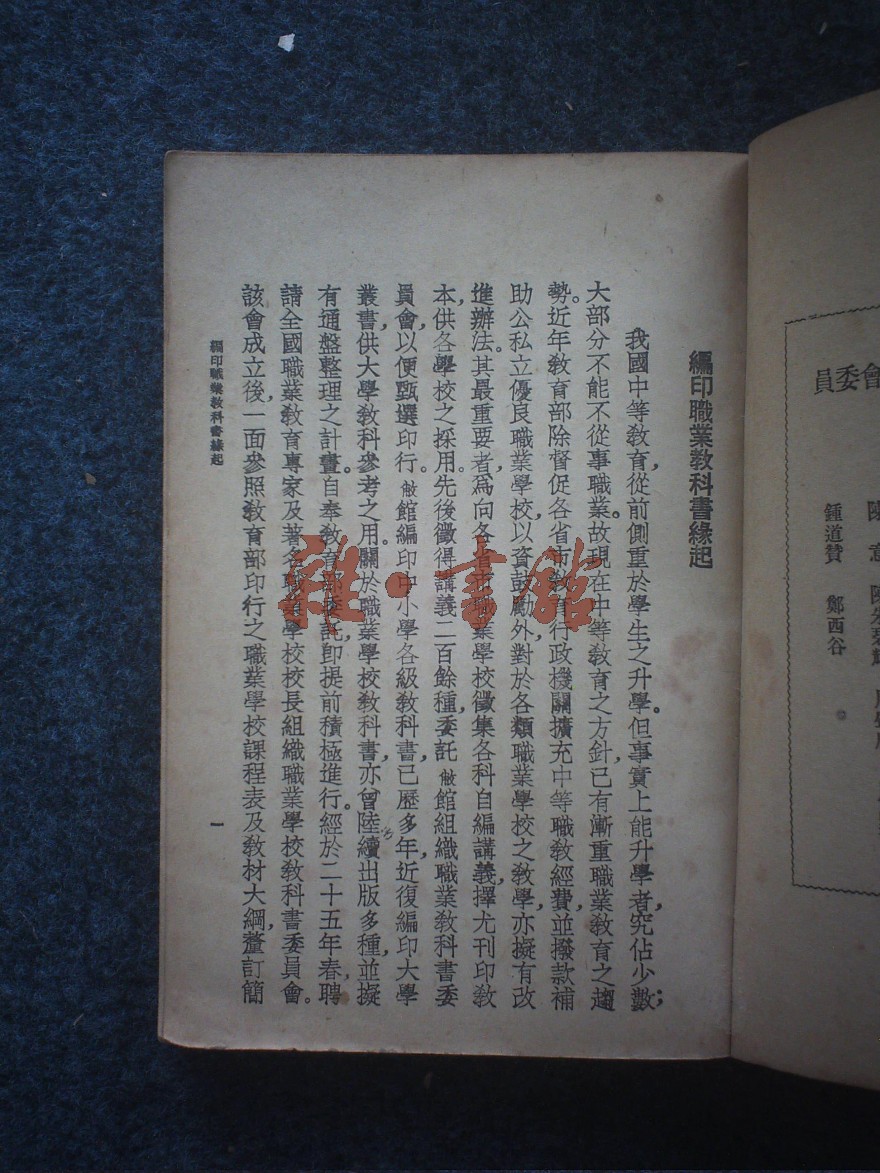 編印職業教科書緣起
我國中等教育，從前側重於學生之升學。但事實上能升學者，究佔少數；
大部分不能不從事職業。故現在中等教育之方針，已有漸重職業教育之趨
勢。近年教育部除督促各省市教育行政機關擴充中等職教經費，並撥款補
助公私立優良職業學校，以資鼓勵外，對於各類職業學校之教學，亦擬有改
進辦法。其最重要者，為向各省市職業學校徵集各科自編講義，擇尤刊印教
本，供各學校之採用。先後徵得講義二百餘種，委託敝館組織職業教科書委
員會，以便甄選印行。敝館編印中小學各級教科書，已歷多年，近復編印大學
叢書，供大學教科參考之用。關於職業學校教科書，亦曾陸續出版多種，並擬
有通盤整理之計畫。自奉教育部委託，即提前積極進行。經於二十五年春，聘
請全國職業教育專家及著名職業學校校長組織職業學校教科書委員會。
該會成立後，一面參照教育部印行之職業學校課程表及教材大綱，釐訂簡
編印職業教科書緣起
一
會委員
鍾道贊 鄭西谷
雜·書館